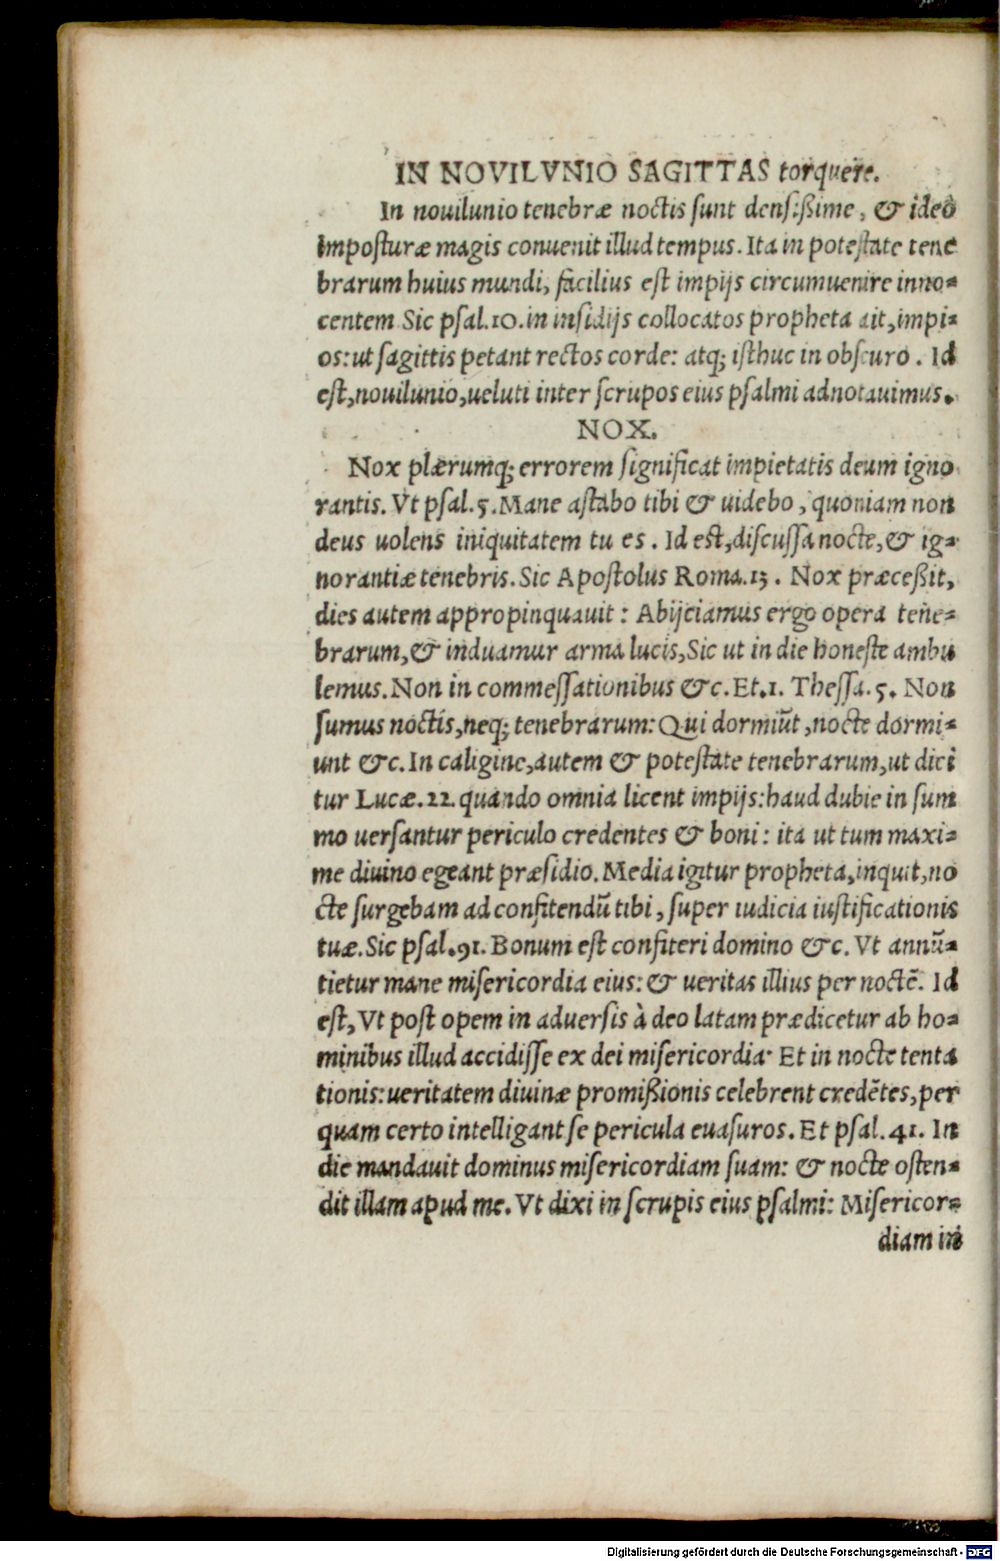 IN NOVILVNIO SAGITTAS torquere.
In nouilunio tenebræ noctis sunt densißime, & ideo
imposturæ magis conuenit illud tempus. Ita in potestate tene
brarum huius mundi, facilius est impijs circumuenire inno-
centem Sic psal.10. in insidijs collocatos propheta ait, impi-
os: ut sagittis petant rectos corde: atq; isthuc in obscuro. Id
est, nouilunio, ueluti inter scrupos eius psalmi adnotauimus.
NOX.
Nox plærumq; errorem significat impietatis deum igno
rantis. Vt psal. 5. Mane astabo tibi & uidebo, quoniam non
deus uolens iniquitatem tu es. Id est, discussa nocte, & ig-
norantiæ tenebris. Sic Apostolus Roma. 13. Nox præceßit,
dies autem appropinquauit: Abijciamus ergo opera tene-
brarum, & induamur arma lucis, Sic ut in die honeste ambu
lemus. Non in commessationibus &c. Et. 1. Thessa. 5. Non
sumus noctis, neq; tenebrarum: Qui dormiūt, nocte dormi-
unt &c. In caligine, autem & potestate tenebrarum, ut dici
tur Lucæ. 22. quando omnia licent impijs: haud dubie in sum
mo uersantur periculo credentes & boni: ita ut tum maxi-
me diuino egeant præsidio. Media igitur propheta, inquit, no
cte surgebam ad confitendū tibi, super iudicia iustificationis
tuæ. Sic psal. 91. Bonum est confiteri domino &c. Vt annū-
tietur mane misericordia eius: & ueritas illius per noctē. Id
est, Vt post opem in aduersis à deo latam prædicetur ab ho-
minibus illud accidisse ex dei misericordia. Et in nocte tenta
tionis: ueritatem diuinæ promißionis celebrent credētes, per
quam certo intelligant se pericula euasuros. Et psal. 41. In
die mandauit dominus misericordiam suam: & nocte osten-
dit illam apud me. Vt dixi in scrupis eius psalmi: Misericor-
diam in
Digitalisierung gefördert durch die Deutsche Forschungsgemeinschaft - DFG